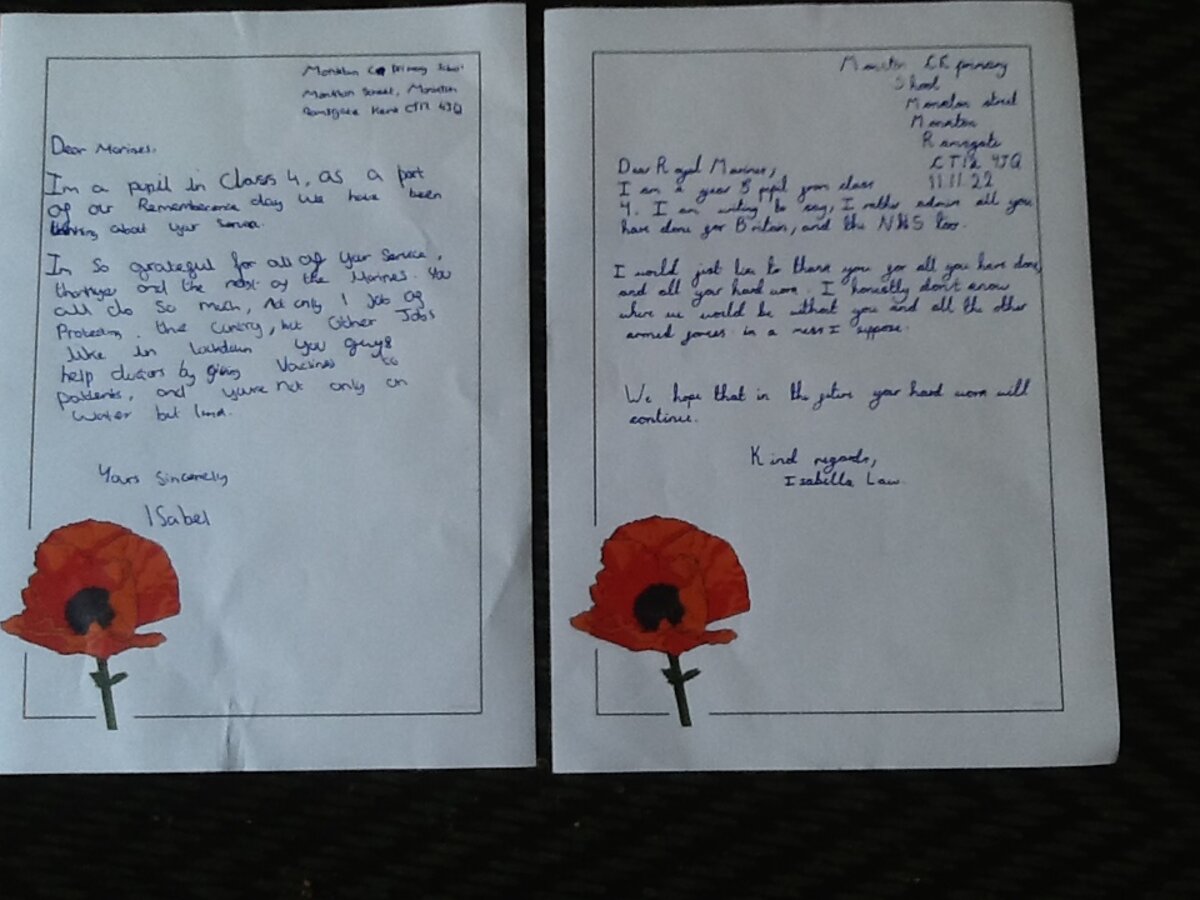 Monkton CE Primary School
Monkton Street, Monkton
Ramsgate Kent CT12 4JQ
Dear Marines,
Im a pupil in Class 4, as a part
of our Rememberence day we have been
thinking about your Service.
Im So grateful for all of your Service,
and the rest of the Marines. You
all do so much, Not only 1 job of
Protecting the Cuntry, but Other Jobs
like in lockdown you guys
help doctors by giving Vaccines to
patients, and youre not only on
water but land.
Yours Sincerely
ISabel
Monkton CE primary
School
Monkton street
Monkton
Ramsgate
CT12 4JQ
11.11.22
Dear Royal Marines,
I am a year 5 pupil from class
4. I am writing to say, I rather admire all you
have done for Britain, and the NHS too.
I would just like to thank you for all you have done,
and all your hard work. I honestly don't know
where we would be without you and all the other
armed forces. in a mess I suppose.
We hope that in the future your hard work will
continue.
Kind regards,
Isabella Law